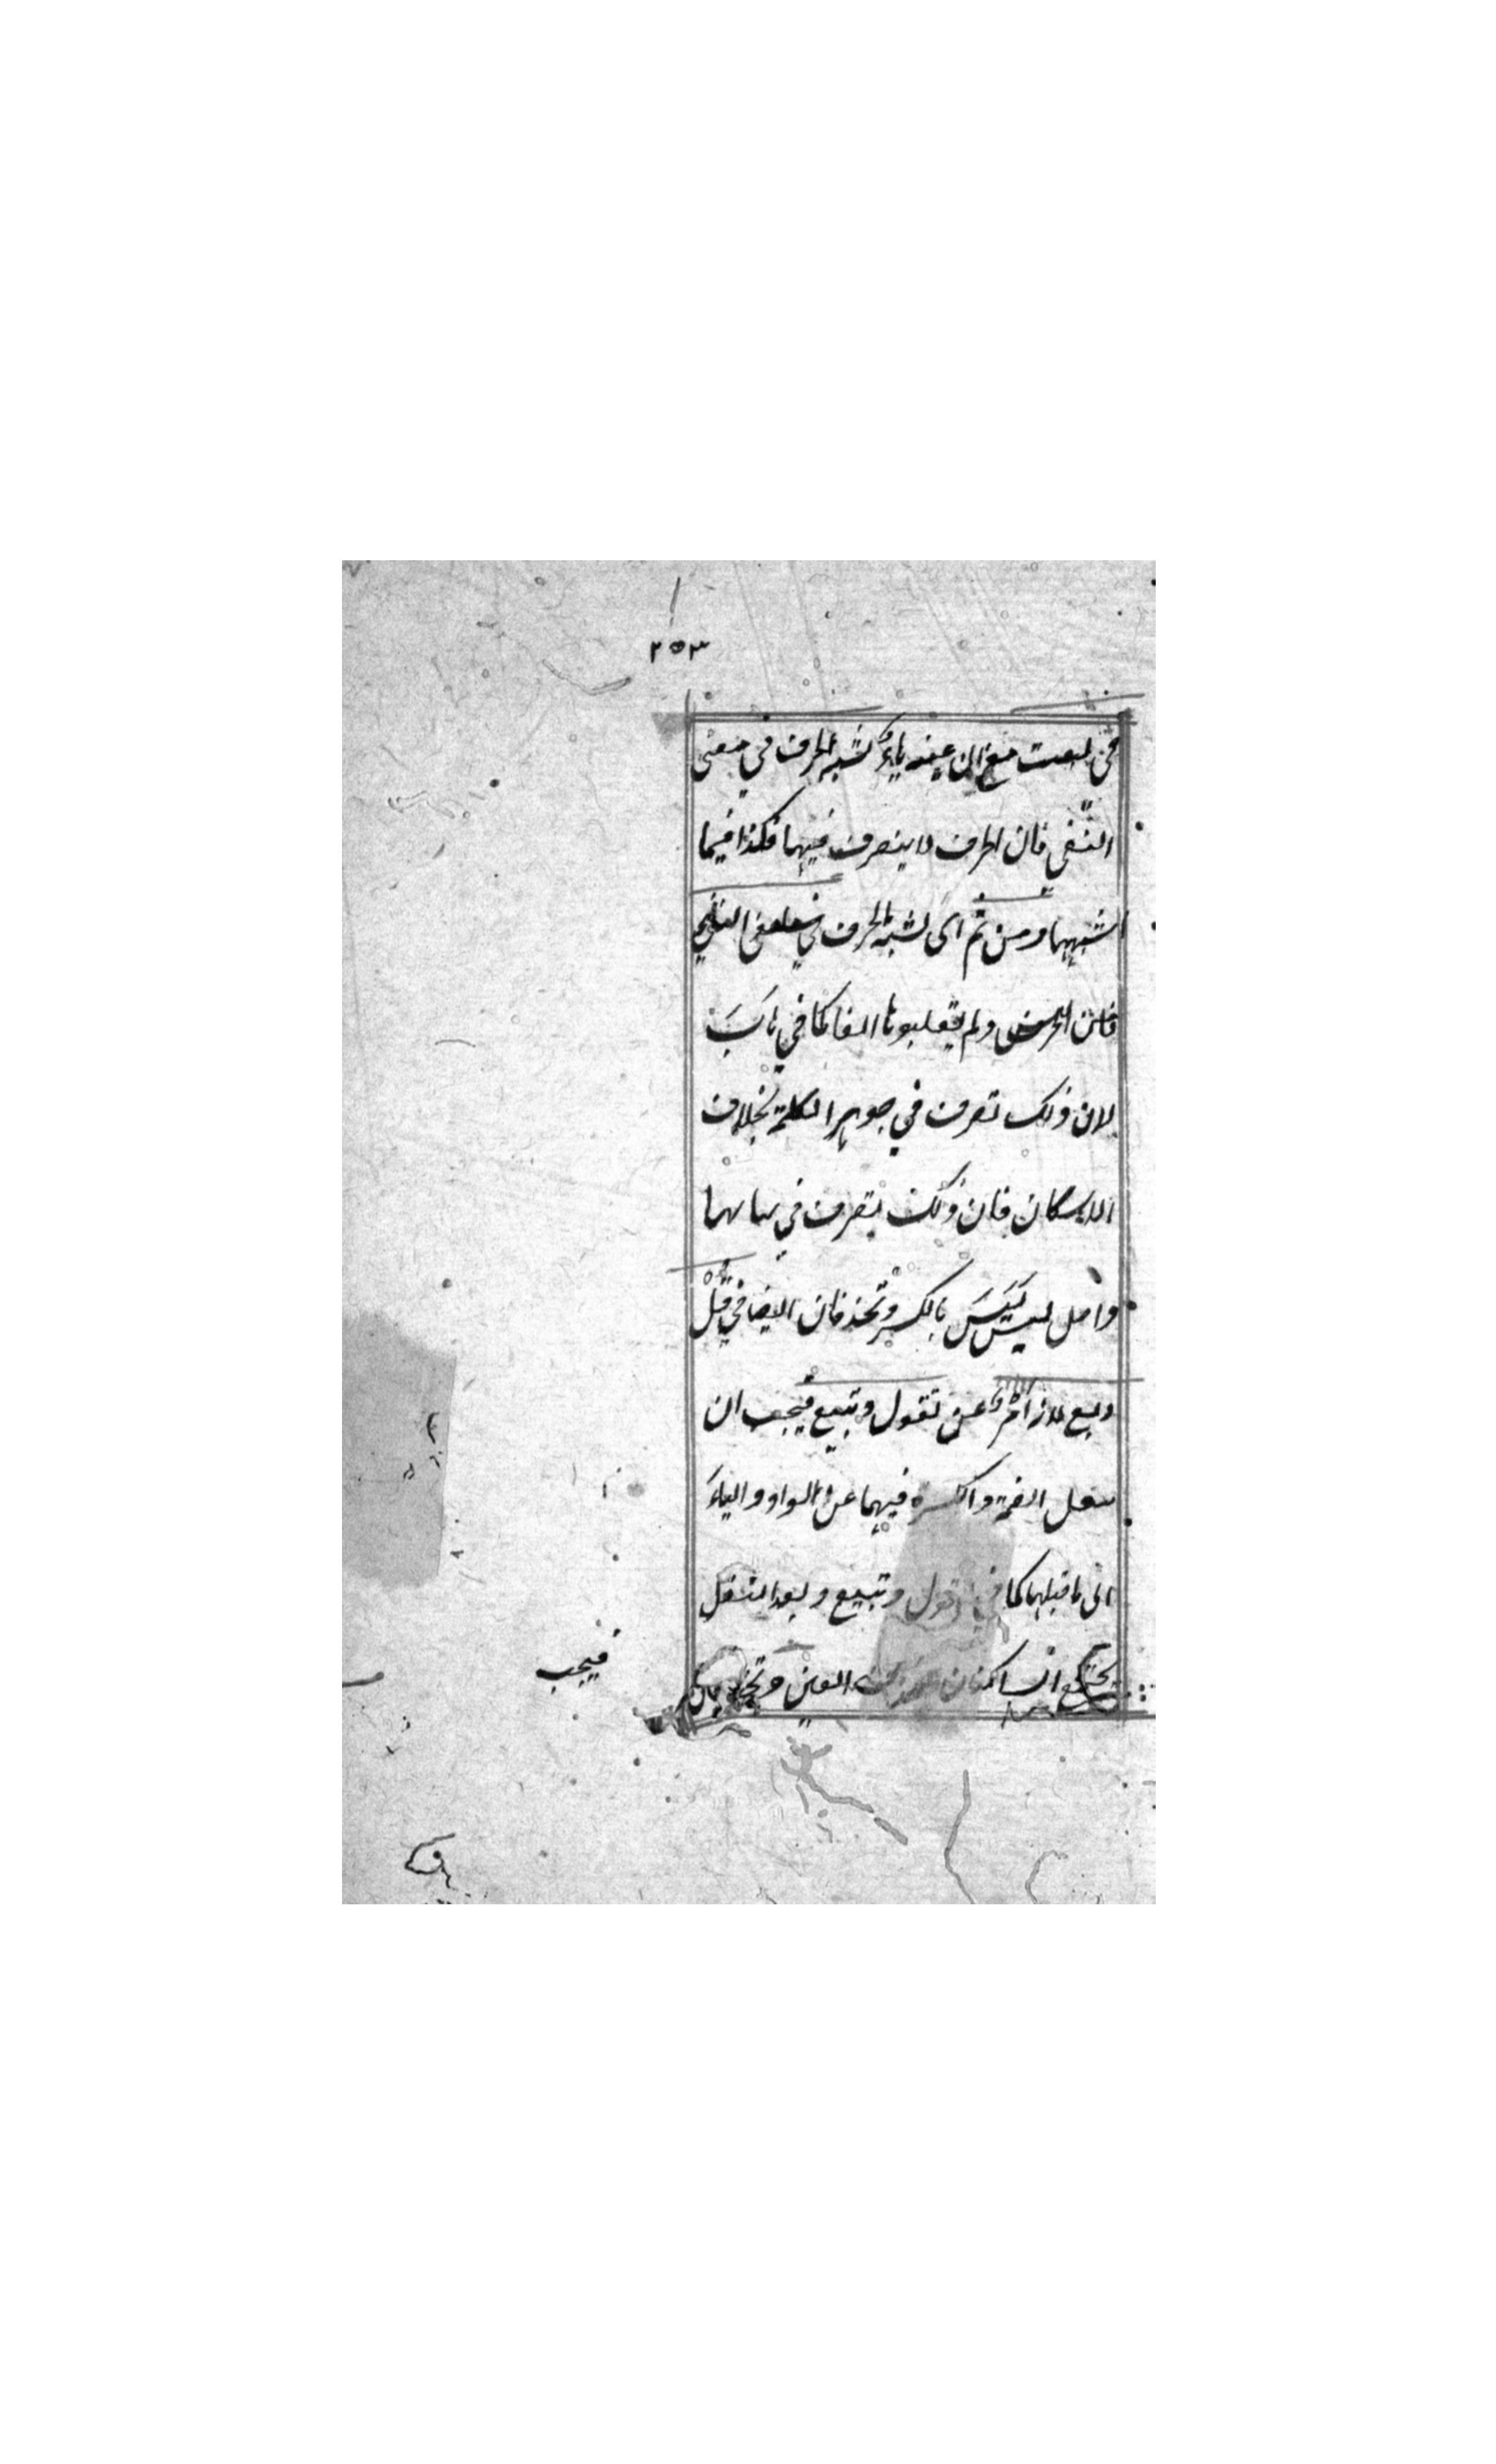 ٢٥٣
في لست مع ان عينه ياء لشبه الحرف في معنى
النفي فان الحرف لا ينصرف فيهما فكذا فيما
اشبههما ومن ثم اى لشبه الحرف في معنى النفي
ولم يقلبوها الفا كما في باب
لان ذلك تصرف في جوهر الكلمة بخلاف
الاسكان فان ذلك تصرف في
واصل ليس لَيِسَ بالكسر وتحذفان ايضا في قُلْ
وبع لانهما عن تقول وتبيع فيجب ان
ينقل الضمة والكسرة فيهما عن الواو والياء
الى ما قبلهما كما في تقول وتبيع وبعد النقل
يجتمع الساكنان العين وتحذفان
فيجب